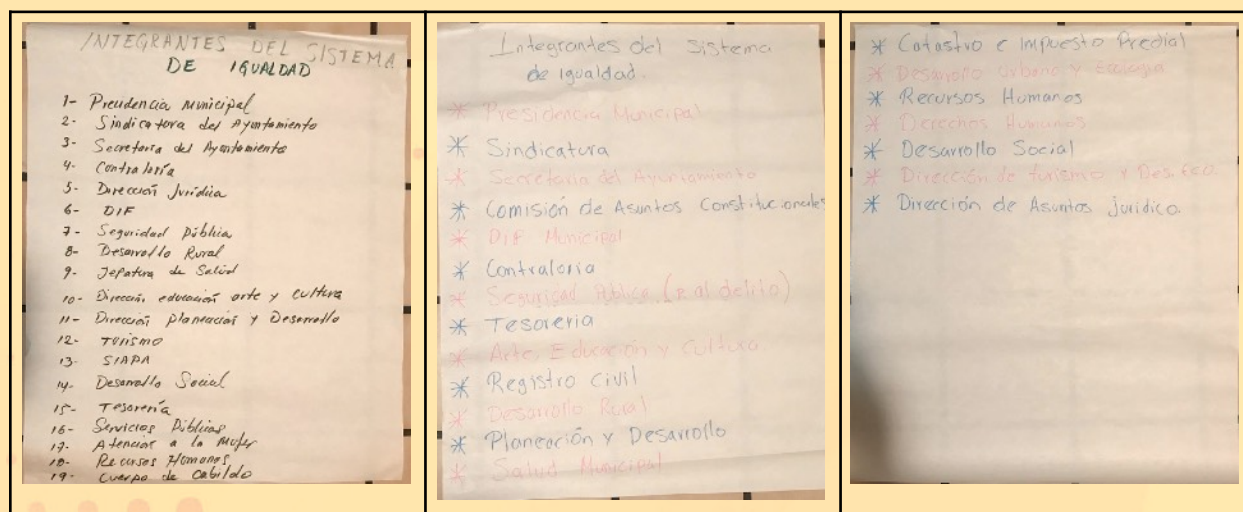 INTEGRANTES DEL SISTEMA
DE IGUALDAD
1- Presidencia Municipal
2- Sindicatura del Ayuntamiento
3- Secretaria del Ayuntamiento
4- Contraloría
5- Dirección Jurídica
6- DIF
7- Seguridad Pública
8- Desarrollo Rural
9- Jefatura de Salud
10- Dirección educación arte y cultura
11- Dirección Planeación y Desarrollo
12- Turismo
13- SIAPA
14- Desarrollo Social
15- Tesorería
16- Servicios Públicos
17- Atención a la Mujer
18- Recursos Humanos
19- Cuerpo de Cabildo
Integrantes del Sistema
de Igualdad.
* Presidencia Municipal
* Sindicatura
* Secretaria del Ayuntamiento
* Comisión de Asuntos Constitucionales
* DIF Municipal
* Contraloria
* Seguridad Pública (P. al delito)
* Tesoreria
* Arte, Educación y Cultura
* Registro Civil
* Desarrollo Rural
* Planeación y Desarrollo
* Salud Municipal
* Catastro e Impuesto Predial
* Desarrollo Urbano y Ecología
* Recursos Humanos
* Derechos Humanos
* Desarrollo Social
* Dirección de turismo y Des. Eco.
* Dirección de Asuntos jurídico.